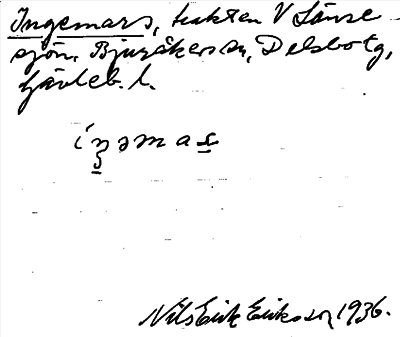 Ingemars, trakten V Länse-
sjön. Bjuråkers sn, Delsbo tg,
Gävleb. l.
Nils Erik Eriksson, 1936.